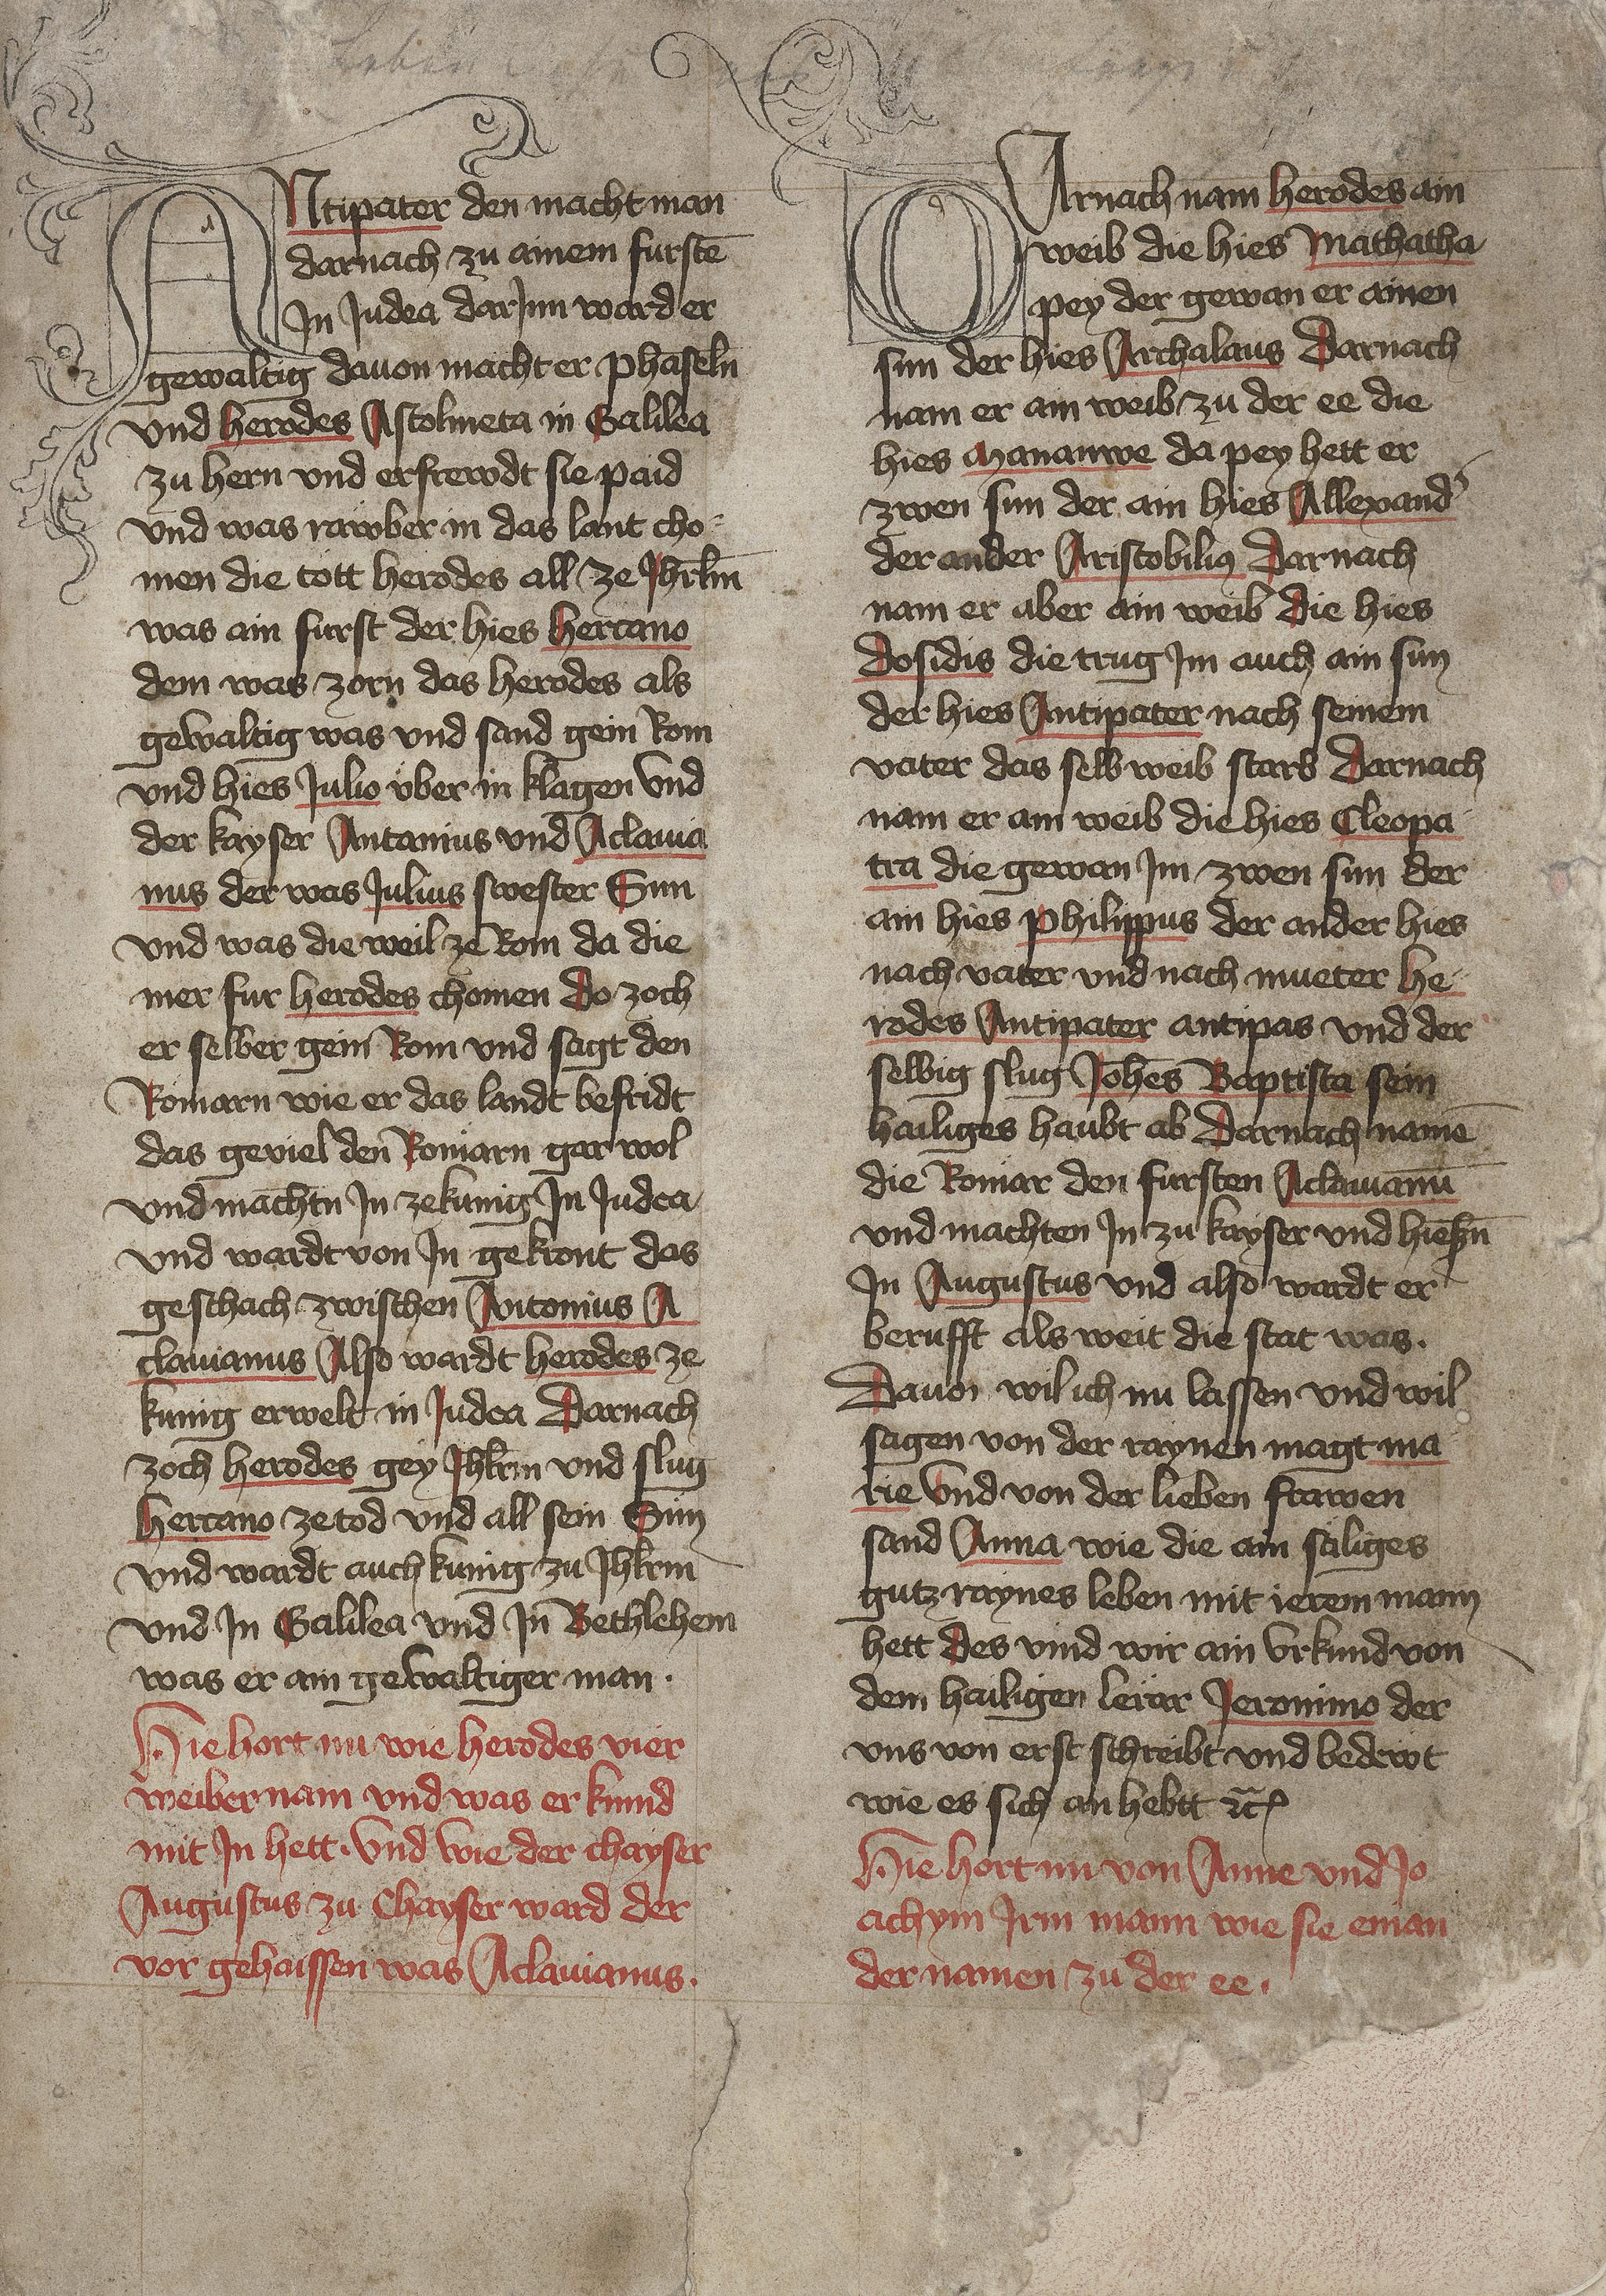 ANtipater den macht man
darnach zu ainem furstē
In Judea darJnn ward er
gewaltig dauon macht er phaseln
vnd herodes Astolmeta in Galilea
zu hern vnd erfrewdt sie paid
vnd was rawber in das lant cho⸗
men die tött herodes all ze Jhrl̄m
was ain furst der hies hercano
dem was zorn das herodes als
gewaltig was vnd sand gein Rom
vnd hies Julio vber in klagen Vnd
der kayser Antanius vnd Aclauia
nus der was Julius swester Sun
vnd was die weil ze Rom da die
mer fur herodes chomen Do zoch
er selber gein Rom vnd sagt den
Romarn wie er das landt befridt
das geuiel den Romarn gar wol
vnd machtn Jn ze kunig Jn Judea
vnd wardt von Jn gekront das
geschach zwischen Antonius A
clauianus Also wardt herodes ze
kunig erwelt in Judea Darnach
zoch herodes gey Jhl̄rm vnd slug
hercano ze tod vnd all sein Sun
vnd wardt auch kunig zu Jhl̄rm
vnd Jn Galilea vnd Jn Bethlehem
was er ain gewaltiger man ·
Hie hort nu wie herodes vier
weiber nam vnd was er kinnd
mit Jn hett · Vnd wie der chayser
Augustus zu Chayser ward der
vor gehaissen was Aclauianus ·
DArnach nam herodes ain
weib die hies Mathatha
pey der gewan er ainen
sun der hies Archalaus Darnach
nam er ain weib zu der ee die
hies Mananwe da pey hett er
zwen sun der ain hies Allexand᾽
der ander Aristobiliꝰ Darnach
nam er aber ain weib die hies
Dosidis die trug Jm auch ain sun
der hies Antipater nach seinem
vater das selb weib starb Darnach
nam er ain weib die hies Cleopa
tra die gewan Jm zwen sun der
ain hies philippus der ander hies
nach vater vnd nach mueter he⸗
rodes Antipater antipas vnd der
selbig slug Joh̄es Baptista sein
hailiges haubt ab Darnach namē
die Romar den fursten Aclauianū
vnd machten Jn zu kayser vnd hieß̄n
Jn Augustus vnd also wardt er
berufft als weit die stat was ·
Dauon wil ich nu lassen vnd wil
sagen von der raynen magt ma
rie Vnd von der lieben frawen
sand Anna wie die ain säliges
gutz raynes leben mit ierem mann
hett des vind wir ain vrkund von
dem hailigen lerar Jeronimo der
vns von erst schreibt vnd bedewt
wie es sich an hebtt ꝛc̄
Hie hort nu von Anne vnd Jo
achym Jrm mann wie sie einan
der namen zu der ee ·